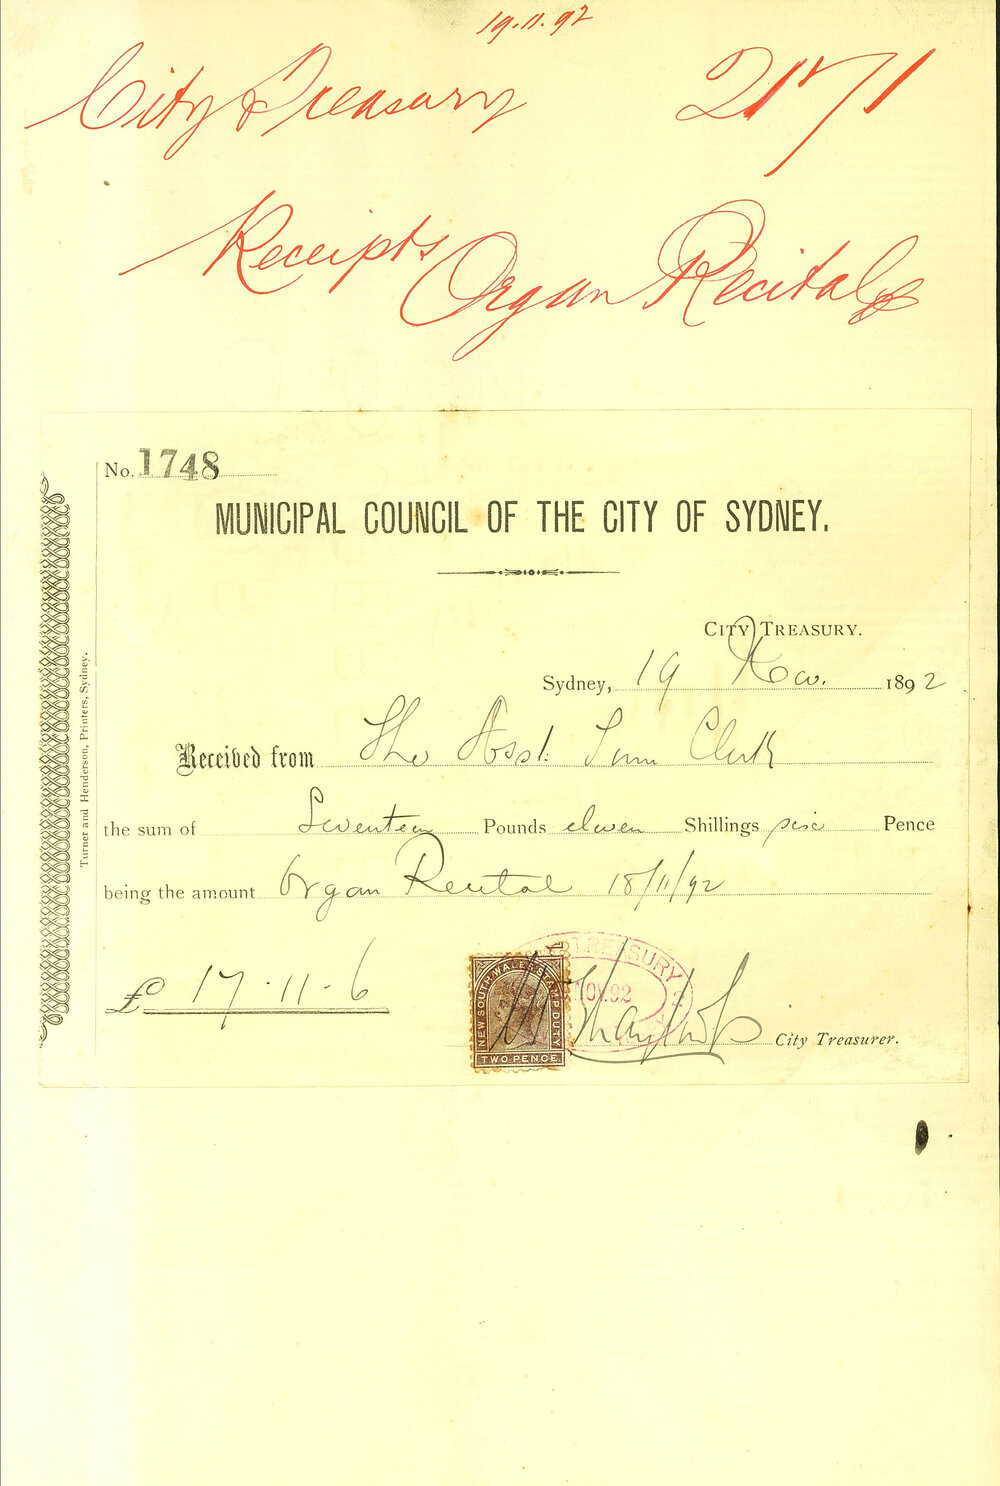 19.11.92
City Treasury 2171
Receipts Organ Recitals
No. 1748
MUNICIPAL COUNCIL OF THE CITY OF SYDNEY.
CITY TREASURY.
Sydney, 19 Nov. 1892
Received from The Asst: Town Clerk
the sum of Seventeen Pounds eleven Shillings six Pence
being the amount Organ Recital 18/11/92
£ 17.11.6
City Treasurer.
Turner and Henderson, Printers, Sydney.
NEW SOUTH WALES STAMP DUTY
TWO PENCE
TREASURY
NOV.92